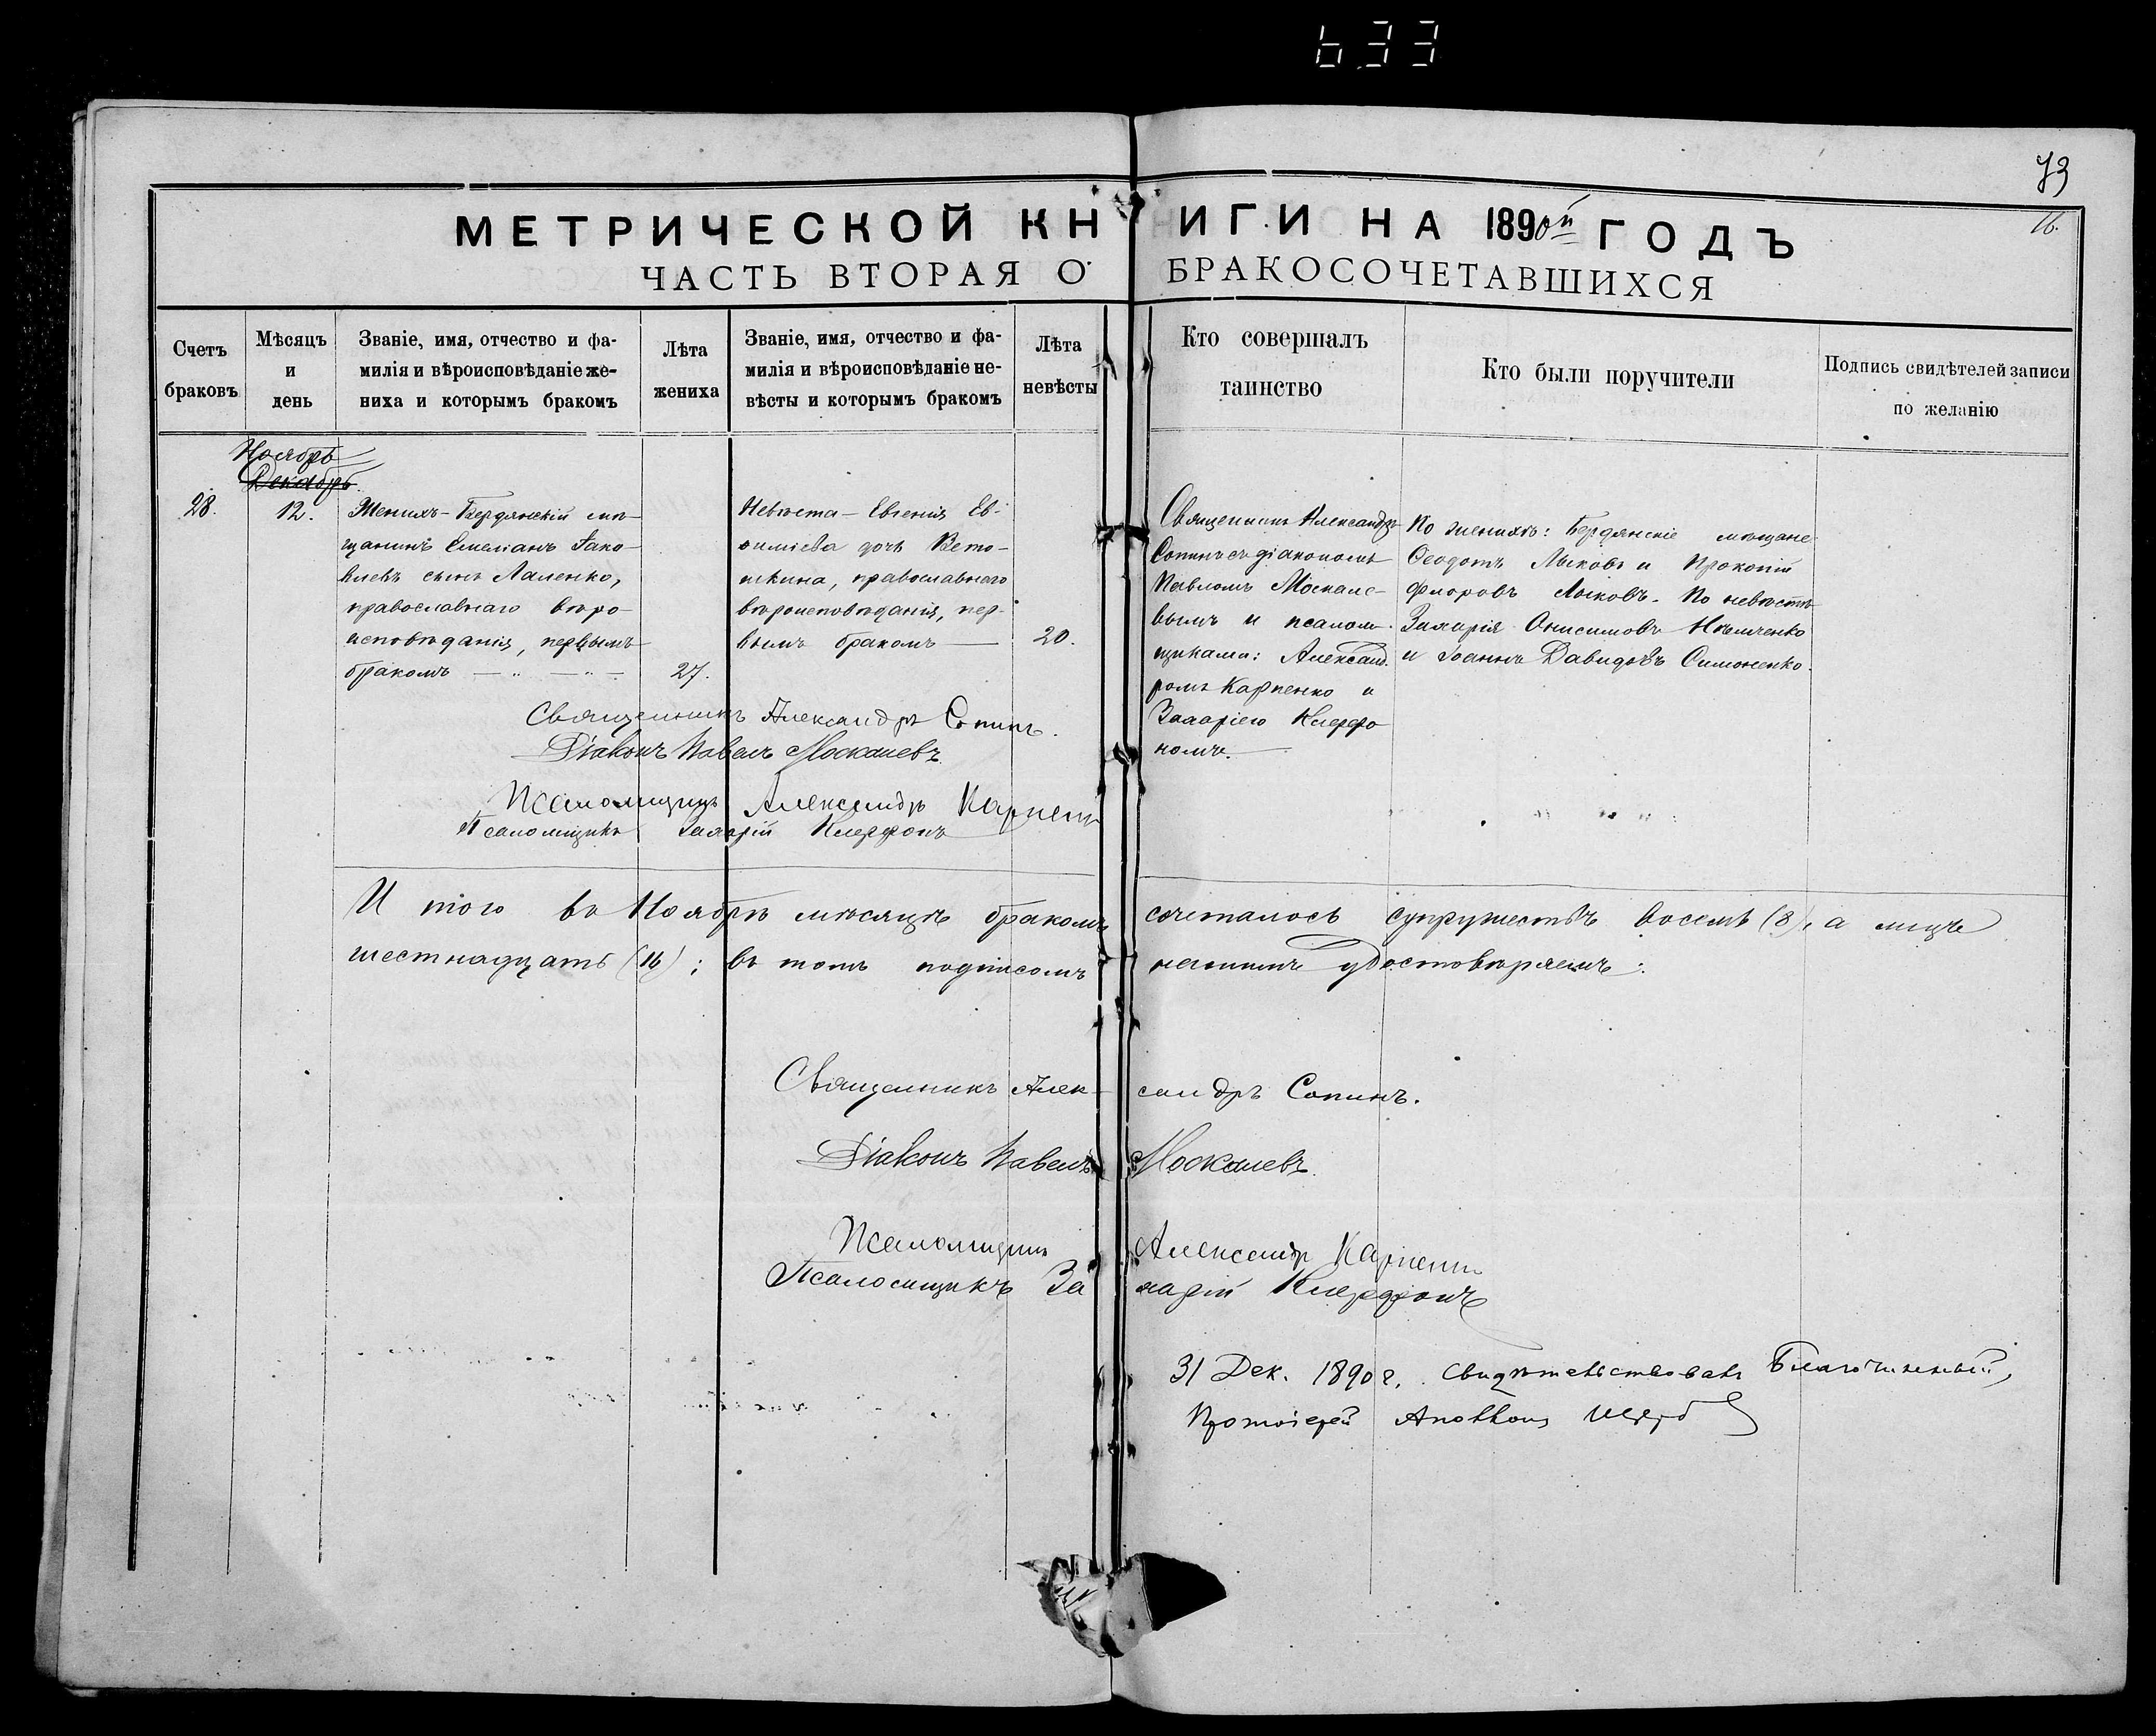 633
73
16.
МЕТРИЧЕСКОЙ КНИГИ НА 1890й ГОДЪ
ЧАСТЬ ВТОРАЯ О БРАКОСОЧЕТАВШИХСЯ
Счетъ браковъ
Мѣсяцъ и день
Званіе, имя, отчество и фа-
милія и вѣроисповѣданіе же-
ниха и которымъ бракомъ
Лѣта жениха
Званіе, имя, отчество и фа-
милія и вѣроисповѣданіе не-
вѣсты и которымъ бракомъ
Лѣта невѣсты
Кто совершалъ
таинство
Кто были поручители
Подпись свидѣтелей записи
по желанію
Ноябрь
Декабрь
28.
12.
Женихъ - Бердянскій мѣ-
щанинъ Емеліанъ Іако-
влевъ сынъ Лаленко,
православнаго вѣро-
исповѣданія, первымъ
бракомъ
27.
Невѣста - Евгенія Ев-
ѳиміева дочь Вето-
шкина, православнаго
вѣроисповѣданія, пер-
вымъ бракомъ
20.
Священникъ Александръ
Сопинъ съ діакономъ
Павломъ Москале-
вымъ и псалом-
щиками: Александ-
ромъ Карпенко и
Захаріею Клерфо
номъ.
По женихѣ: Бердянскіе мѣщане
Ѳеодотъ Лыковъ и Прокопій
Флоровъ Лыковъ. По невѣстѣ
Захарія Онисимовъ Нѣмченко
и Іоаннъ Давидовъ Симоненко.
Священникъ Александръ Сопинъ.
Діаконъ Павелъ Москалевъ
Псаломщикъ Александръ Карпенко
Псаломщикъ Захарій Клерфонъ
И того въ Ноябрѣ мѣсяцѣ бракомъ сочеталось супружествъ восемь (8), а лицъ
шестнадцать (16); въ томъ подписомъ нашимъ удостовѣряемъ:
Священникъ Александръ Сопинъ.
Діаконъ Павелъ Москалевъ.
Псаломщикъ Александръ Карпенко
Псаломщикъ Захарій Клерфонъ
31 Дек. 1890 г. свидѣтельствовалъ Благочинный,
Протоіерей